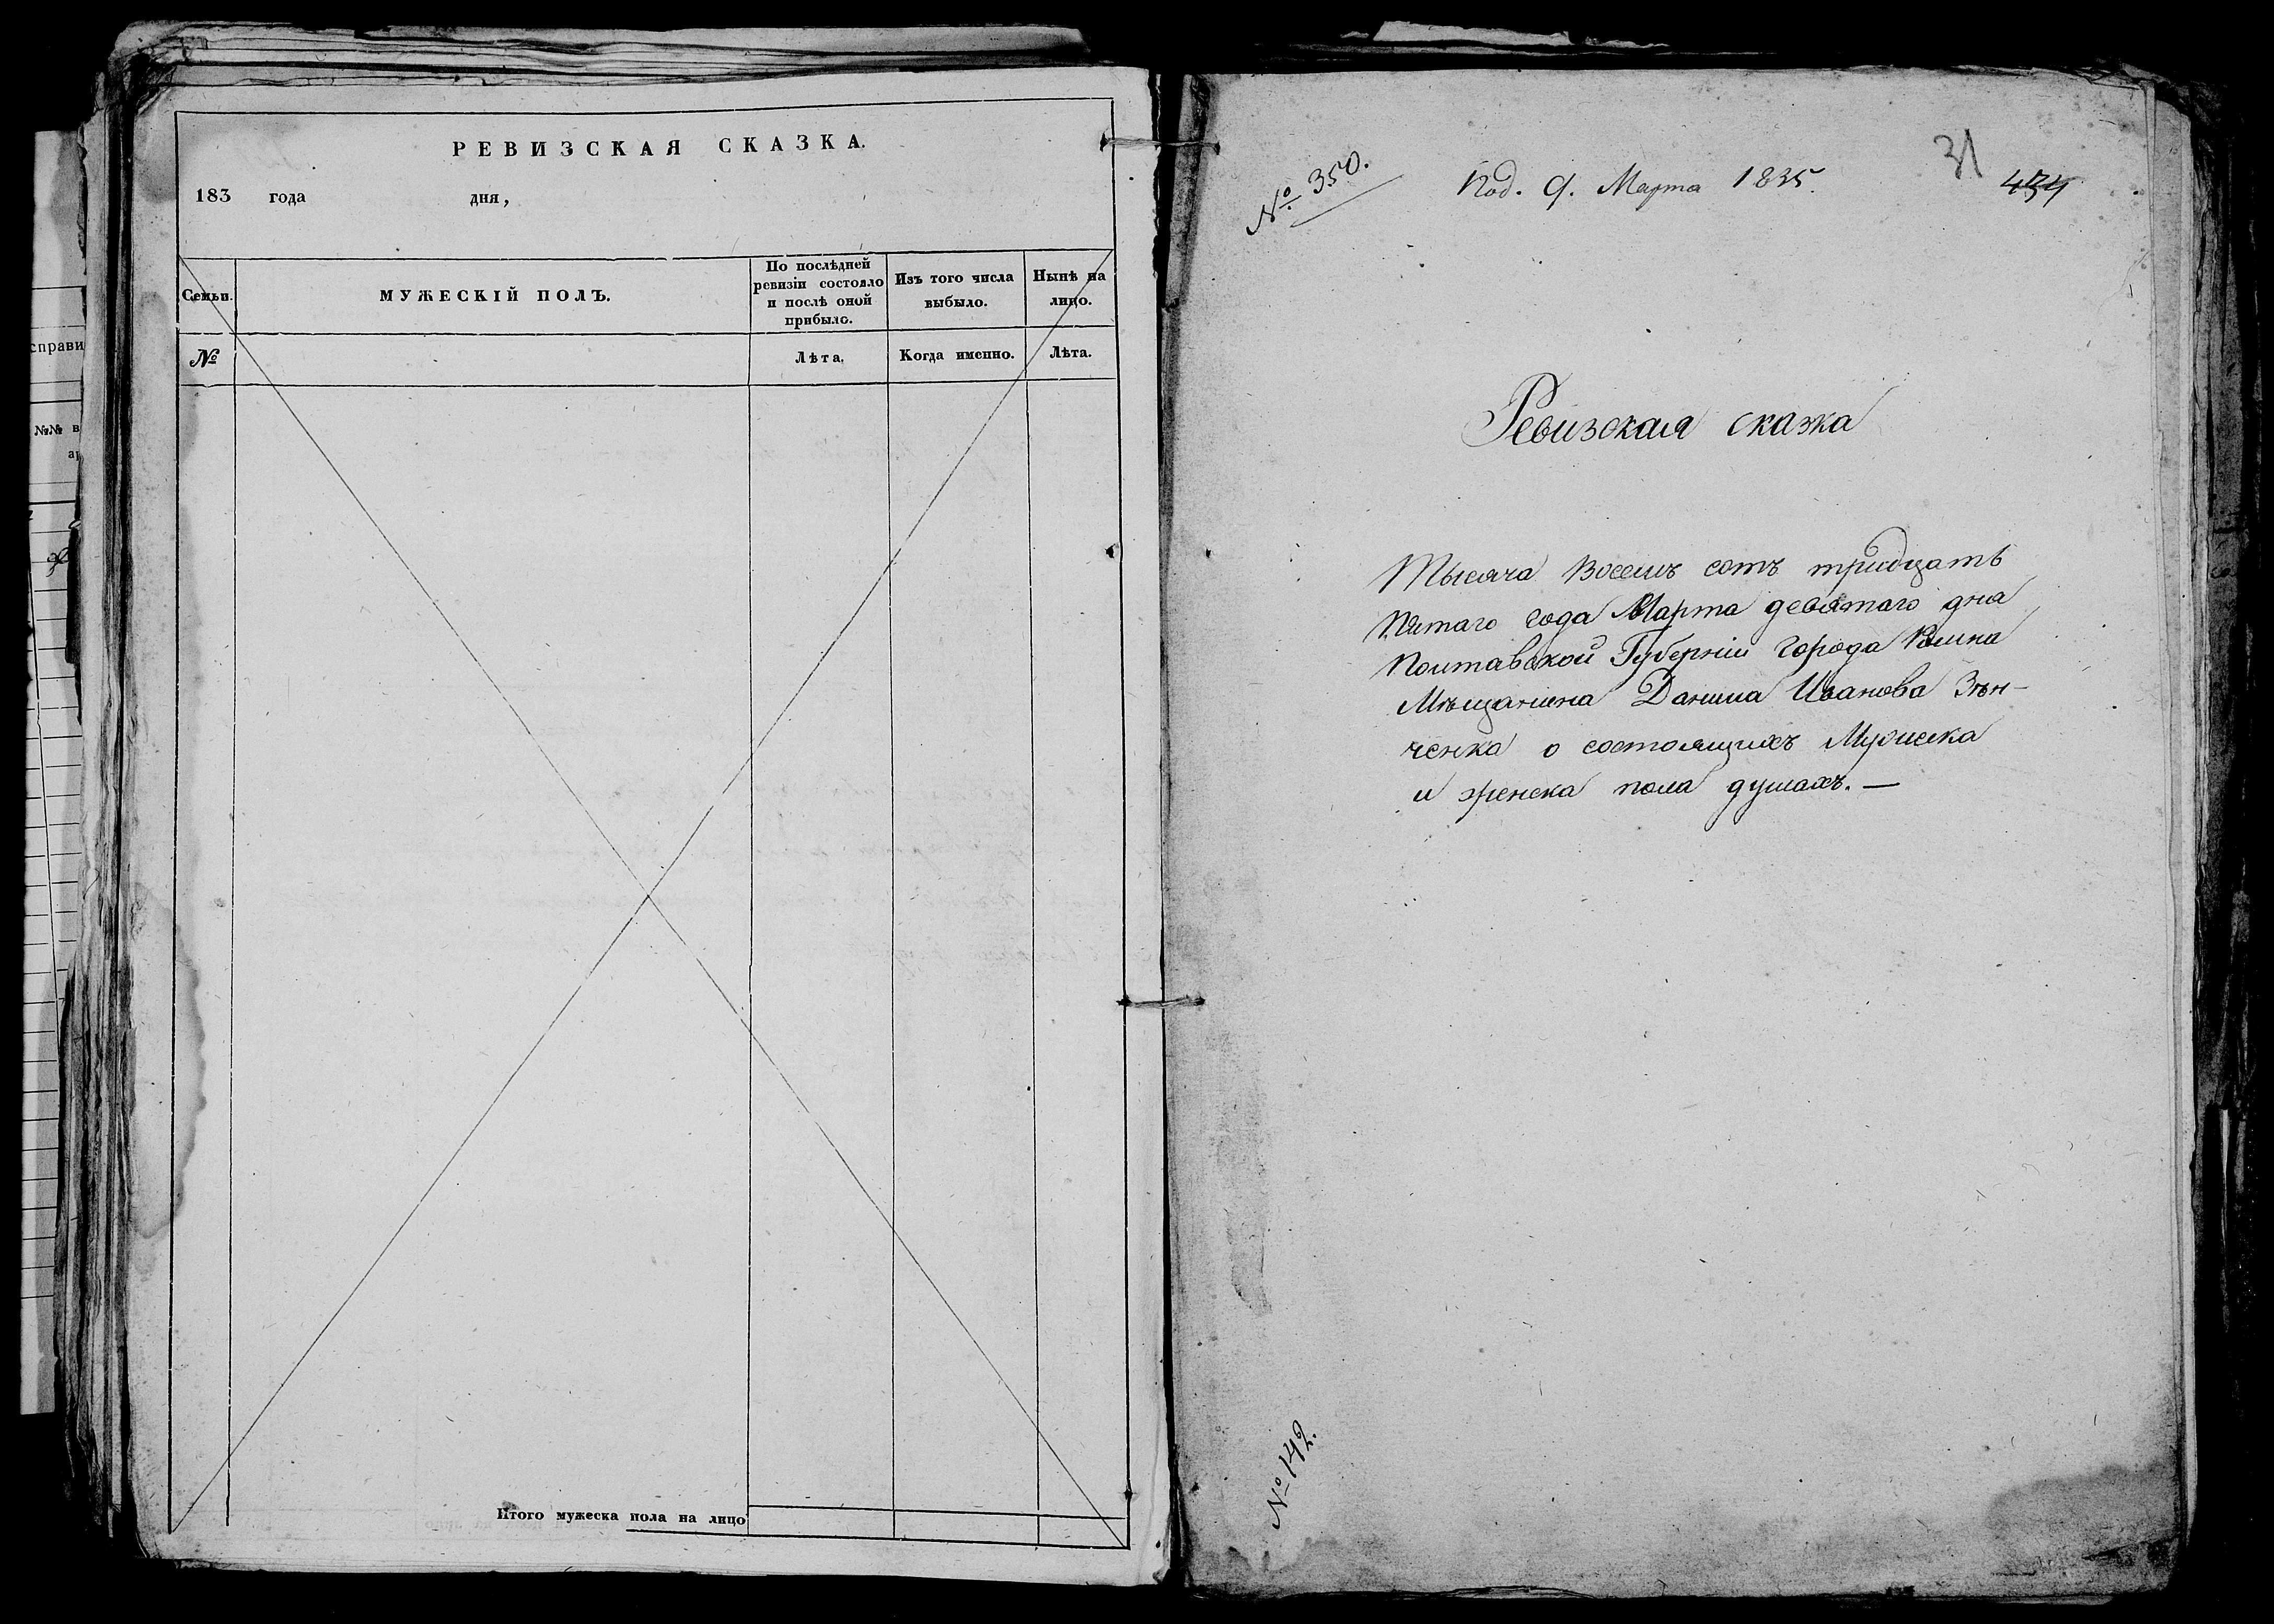 РЕВИЗСКАЯ СКАЗКА.
183 года дня,
Семьи.
МУЖЕСКІЙ ПОЛЪ.
По послѣдней
ревизіи состояло
и послѣ оной
прибыло.
Изъ того числа
выбыло.
Нынѣ на
лицо.
№
Лѣта.
Когда именно.
Лѣта.
Итого мужеска пола на лицо
справи
№№ в
№ 350.
Под. 9. Марта 1835.
31
Ревизская сказка
Тысяча Восемь сотъ тридцать
Пятаго года Марта девятаго дня
Полтавской Губерніи Города
Мѣщанина Данила Иванова Зѣн-
ченка о состоящихъ Мужеска
и женска пола душахъ.—
№ 142.